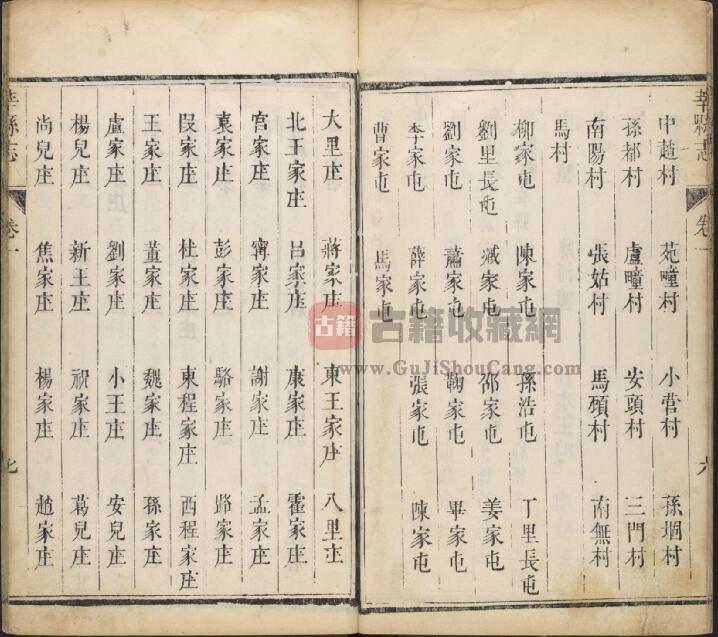 莘縣志 卷一 六
中趙村 苑疃村 小菅村 孫堌村
孫都村 盧疃村 安頭村 三門村
南陽村 張姑村 馬頦村 南無村
馬村
柳家屯 陳家屯 孫浩屯 丁里長屯
劉里長屯 臧家屯 邵家屯 姜家屯
劉家屯 蕭家屯 鞠家屯 畢家屯
李家屯 薛家屯 張家屯 陳家屯
曹家屯 馬家屯
大里庄 蔣家庄 東王家庄 八里庄
北王家庄 呂家庄 康家庄 霍家庄
宫家庄 甯家庄 謝家庄 孟家庄
袁家庄 彭家庄 駱家庄 路家庄
段家庄 杜家庄 東程家庄 西程家庄
王家庄 董家庄 魏家庄 孫家庄
盧家庄 劉家庄 小王庄 安兒庄
楊兒庄 新王庄 祝家庄 葛兒庄
尚兒庄 焦家庄 楊家庄 趙家庄
莘縣志 卷一 七
古籍 古籍收藏網
www.GuJiShouCang.com